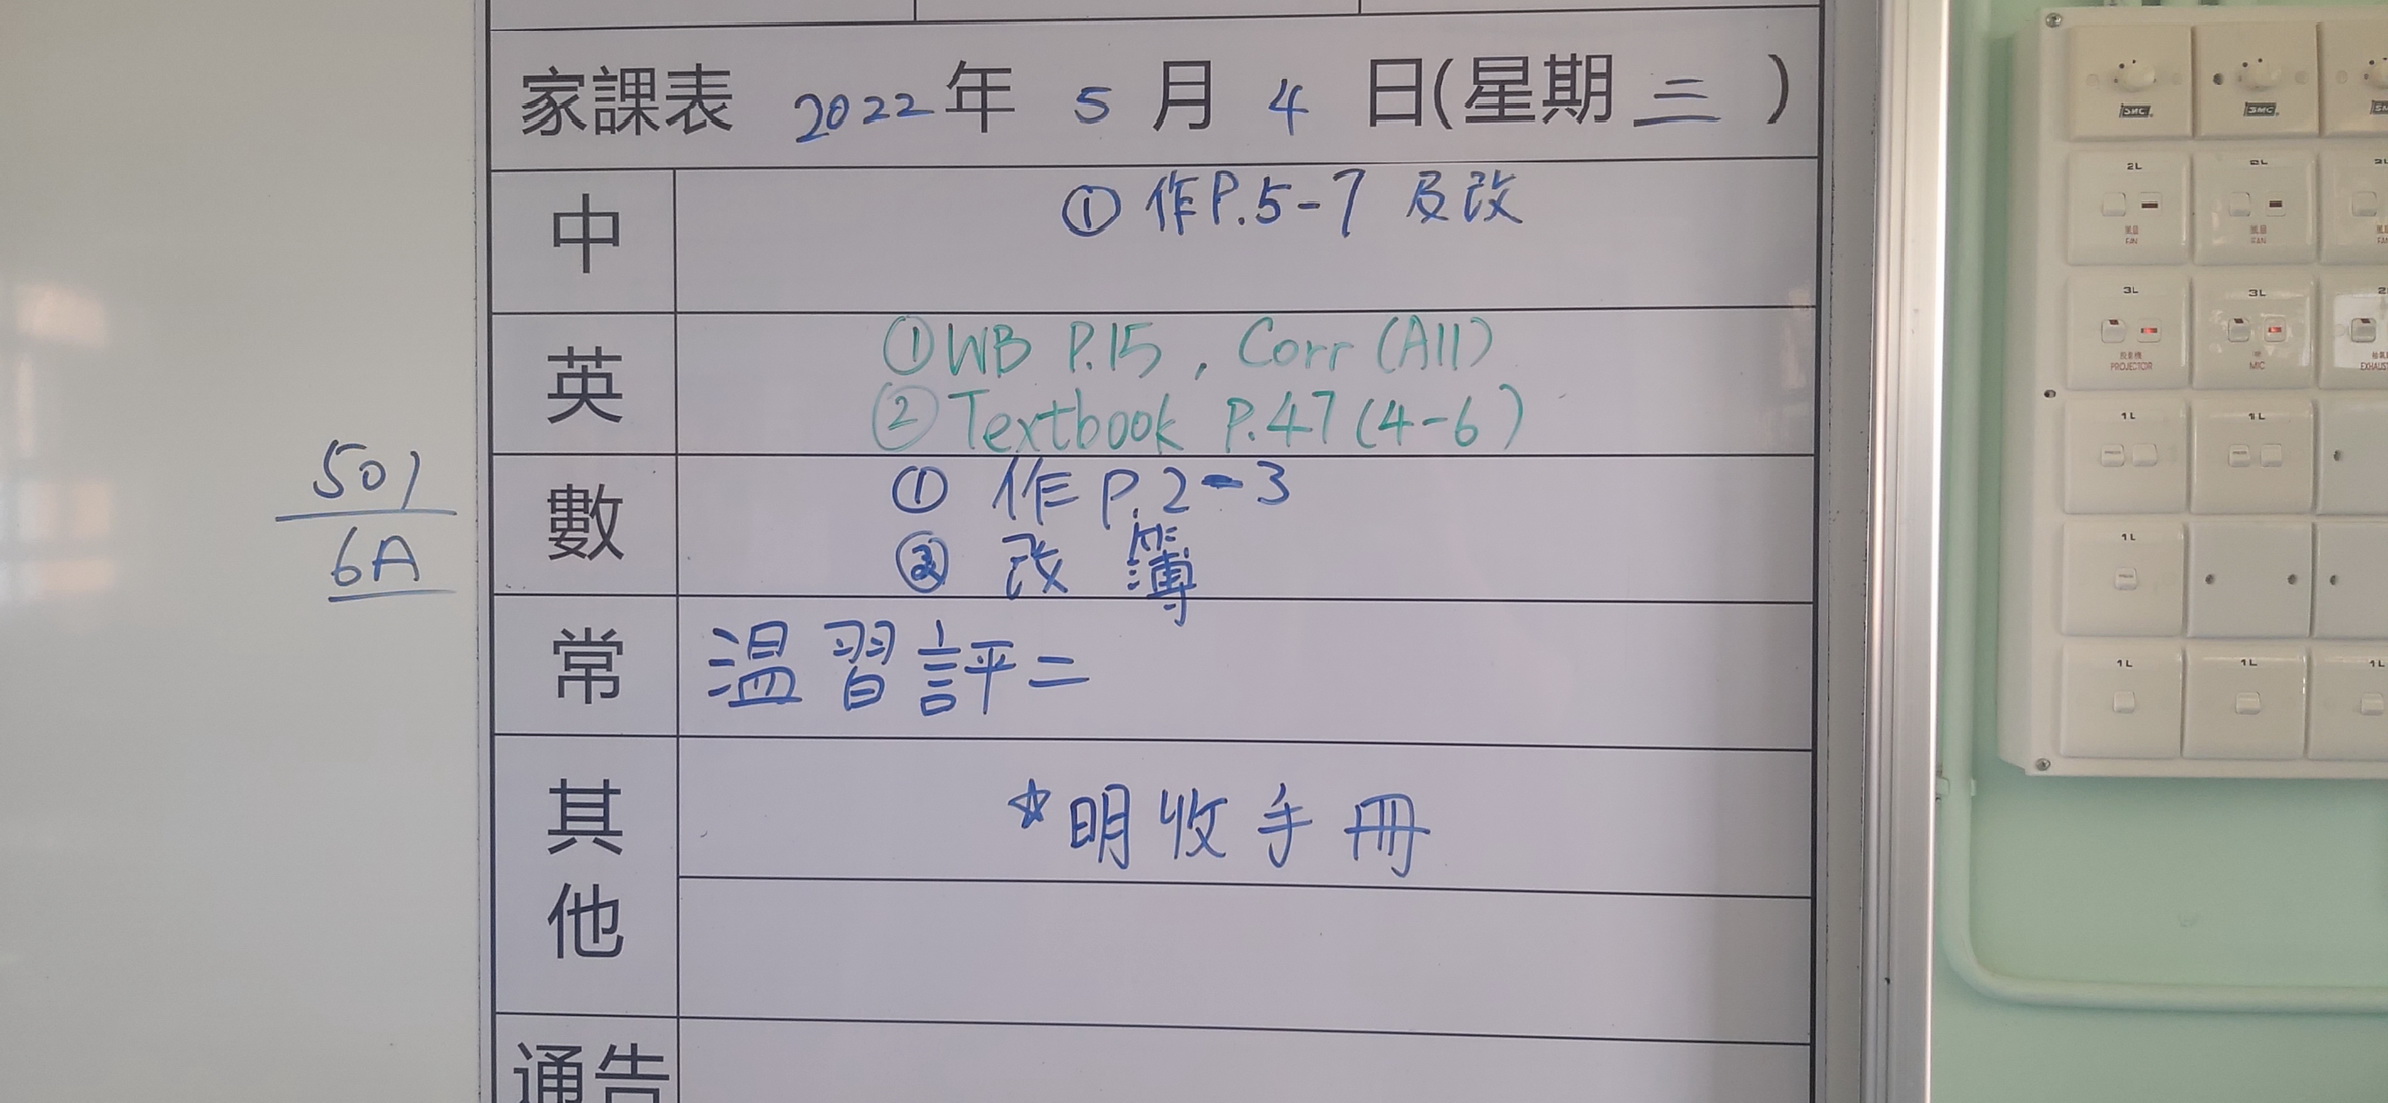 家課表 2022年 5月 4日(星期三)
中
① 作P.5-7 及改
英
①WB P.15, Corr (All)
②Textbook P.47 (4-6)
數
① 作P.2-3
② 改簿
常
温習評二
其他
☆明收手冊
通告
501
6A
SMC SMC
2L 2L
風扇 風扇
FAN FAN
3L 3L
投影機
PROJECTOR MIC
EXHAUST
1L 1L
1L
1L 1L 1L